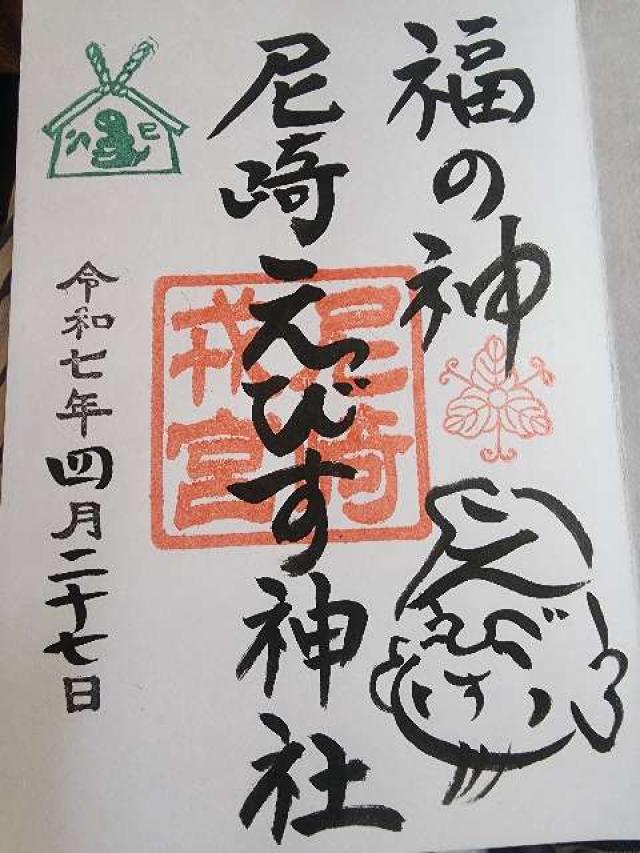 福の神
尼崎えびす神社
尼崎
戎宮
令和七年四月二十七日
巳